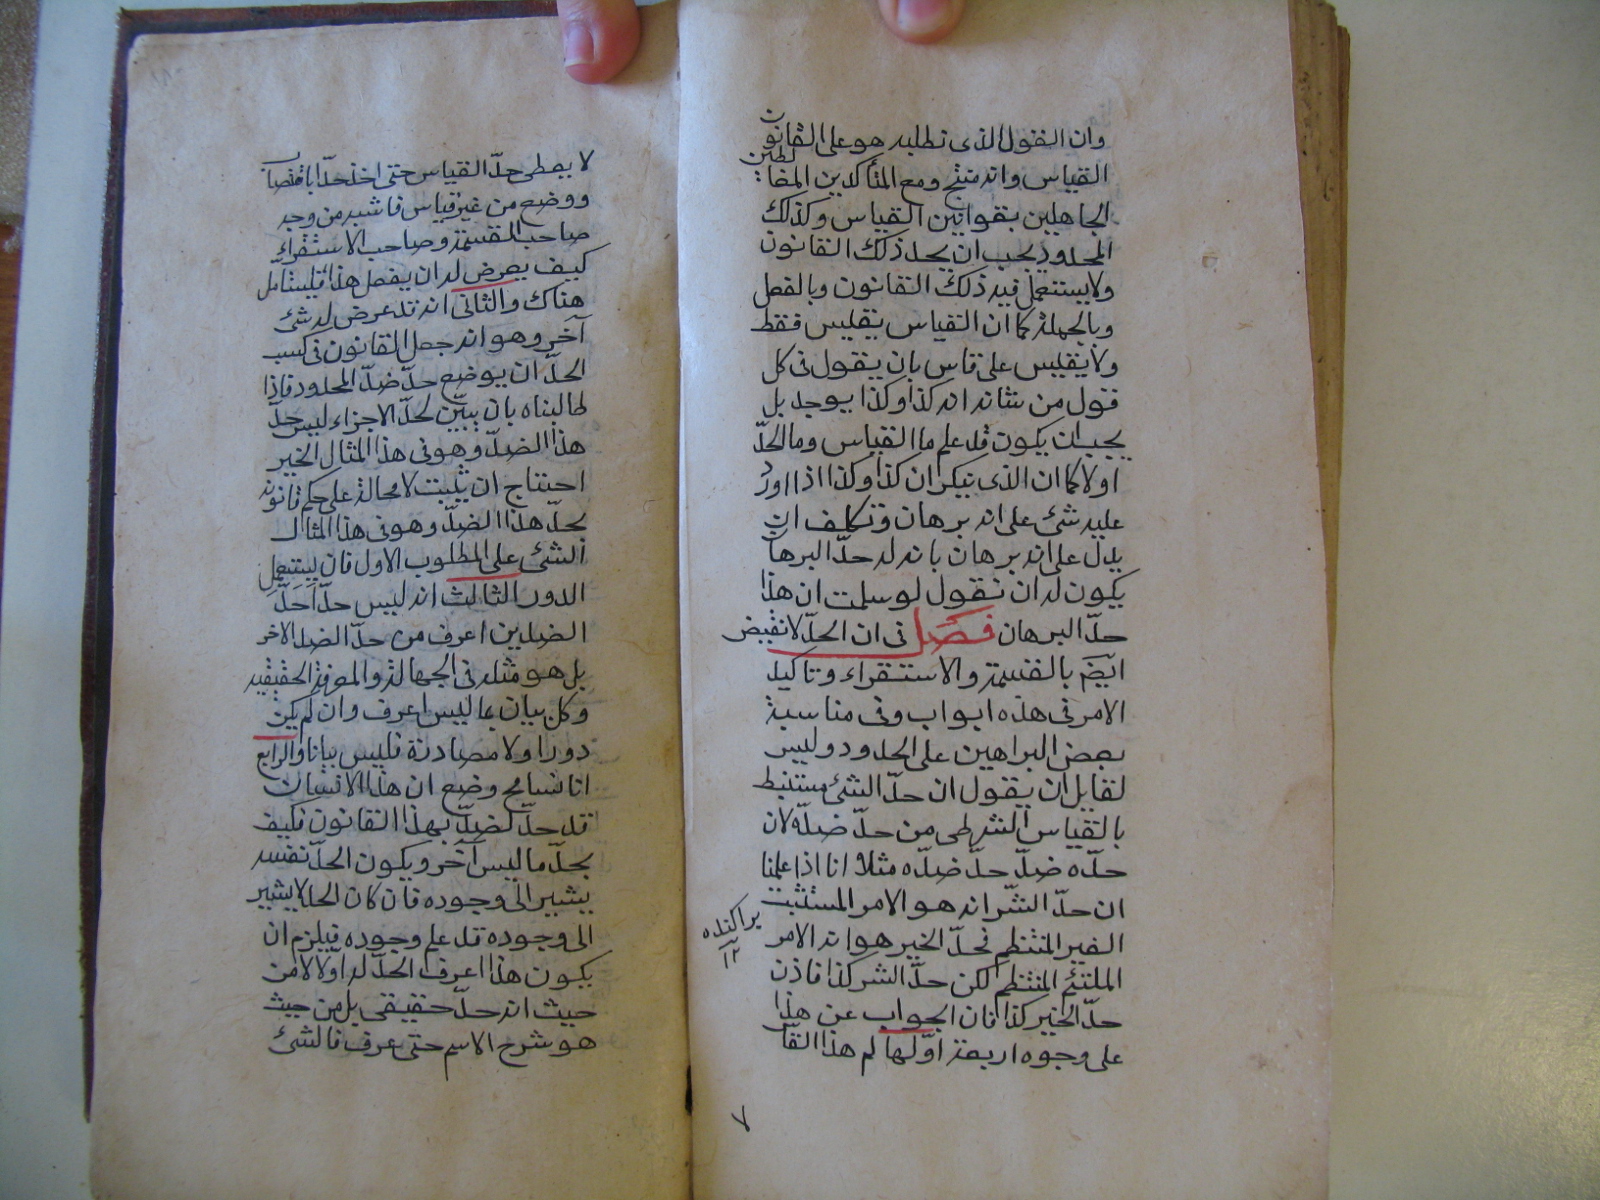 وان القول الذى تطلبه هو على القانون
القياس وانه منتج ومع المتأكدين المغالطين
الجاهلين بقوانين القياس وكذلك
المحدود يجب ان يحد ذلك القانون
ولا يستعمل فيه ذلك القانون وبالفعل
وبالجملة كما ان القياس يقليس فقط
ولا يقليس على قاس بان يقول فى كل
قول من شانه انه كذا وكذا يوجد بل
يجب ان يكون قد علم ما القياس وما الحدّ
اولا كما ان الذى ينكر ان كذا وكذا اذا اورد
عليه شئ على انه برهان وتكلف ان
يدل على انه برهان بانه له حدّ البرهان
يكون له ان نقول لو سلمت ان هذا
حدّ البرهان فصل فى ان الحدّ لا نقيض
ايضم بالقسمة والاستقراء وتاكيد
الامر فى هذه ابواب وفى مناسبة
بعض البراهين على الحدود وليس
لقايل ان يقول ان حدّ الشئ مستنبط
بالقياس الشرطى من حدّ ضدّه لان
حدّه ضدّ حدّ ضدّه مثلا انا اذا علمنا
ان حدّ الشّر انه هو الامر المستثبت
الغير المنتظم فحدّ الخير هو انه الامر
الملتئم المنتظم لكن حدّ الشر كذا فاذن
حدّ الخير كذا فان الجواب عن هذا
على وجوه اربعة اوّلها لم هذا القا
براكنده
١٢
٧
لا يعطى حدّ القياس حتى اخذ حدّا باقتصاب
ووضع من غير قياس فاشبه من وجه
صاحب القسمة وصاحب الاستقراء
كيف يعرض له ان يفصل هذا فليتامل
هناك والثانى انه قد عرض له شئ
آخر وهو انه جعل القانون فى كسب
الحدّ ان يوضع حدّ ضدّ المحدود فاذا
طالبناه بان يبيّن لحدّ الاجزاء ليس حدّ
هذا الضدّ وهو فى هذا المثال الخير
احتاج ان يثبت لا محالة على حكم قانونه
بحدّ هذا الضدّ وهو فى هذا المثال
الشئ على المطلوب الاول فان يستعمل
الدور الثالث انه ليس حدّ احدّ
الضدين اعرف من حدّ الضد الاخر
بل هو مثله فى الجهالة والموفة الحقيقيه
وكل بيان بما ليس اعرف وان لم يكن
دورا ولا مصادرة فليس بيانا والرابع
انا نسامح وضع ان هذا الانسان
قد حدّ لضدّ بهذا القانون فكيف
يحدّ ما ليس آخر ويكون الحدّ نفسه
يشير الى وجوده فان كان الحد لا يشير
الى وجوده قد علم وجوده فيلزم ان
يكون هذا اعرف الحدّ له اولا لا من
حيث انه حدّ حقيقى بل من حيث
هو شرح الاسم حتى عرف فالشئ